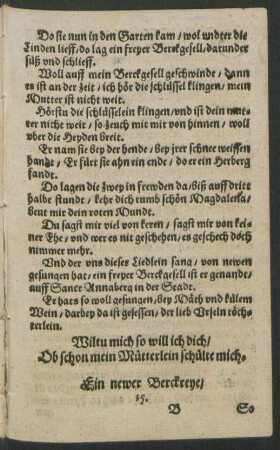 Do sie nun in den Garten kam / wol vndter die
Linden lieff / do lag ein freyer Berckgesell / darunder
süß vnd schlieff.
Woll auff mein Berckgesell geschwinde / dann
es ist an der zeit / ich hör die schlüssel klingen / mein
Mutter ist nicht weit.
Hörstu die schlüsselein klingen / vnd ist dein mut-
ter nicht weit / so zeuch mit mir von hinnen / woll
vber die Heyden breit.
Er nam sie bey der hende / bey jrer schnee weissen
handt / Er fürt sie ahn ein ende / do er ein Herberg
fandt.
Do lagen die zwey in frewden da / biß auff dritt
halbe stundt / kehr dich rumb schön Magdalena /
beut mir dein roten Mundt.
Du sagst mir viel von keren / sagst mir von kei-
ner Ehe / vnd wer es nit geschehen / es geschech doch
nimmer mehr.
Vnd der vns dieses Liedlein sang / von newen
gesungen hat / ein freyer Berckgesell ist er genandt /
auff Sanct Annaberg in der Stadt.
Er hats so woll gesungen / bey Mäth vnd külem
Wein / darbey da ist gesessen / der lieb Vrseln töch-
terlein.
Wiltu mich so will ich dich /
Ob schon mein Mütterlein schülte mich.
Ein newer Berckreye /
15.
B So